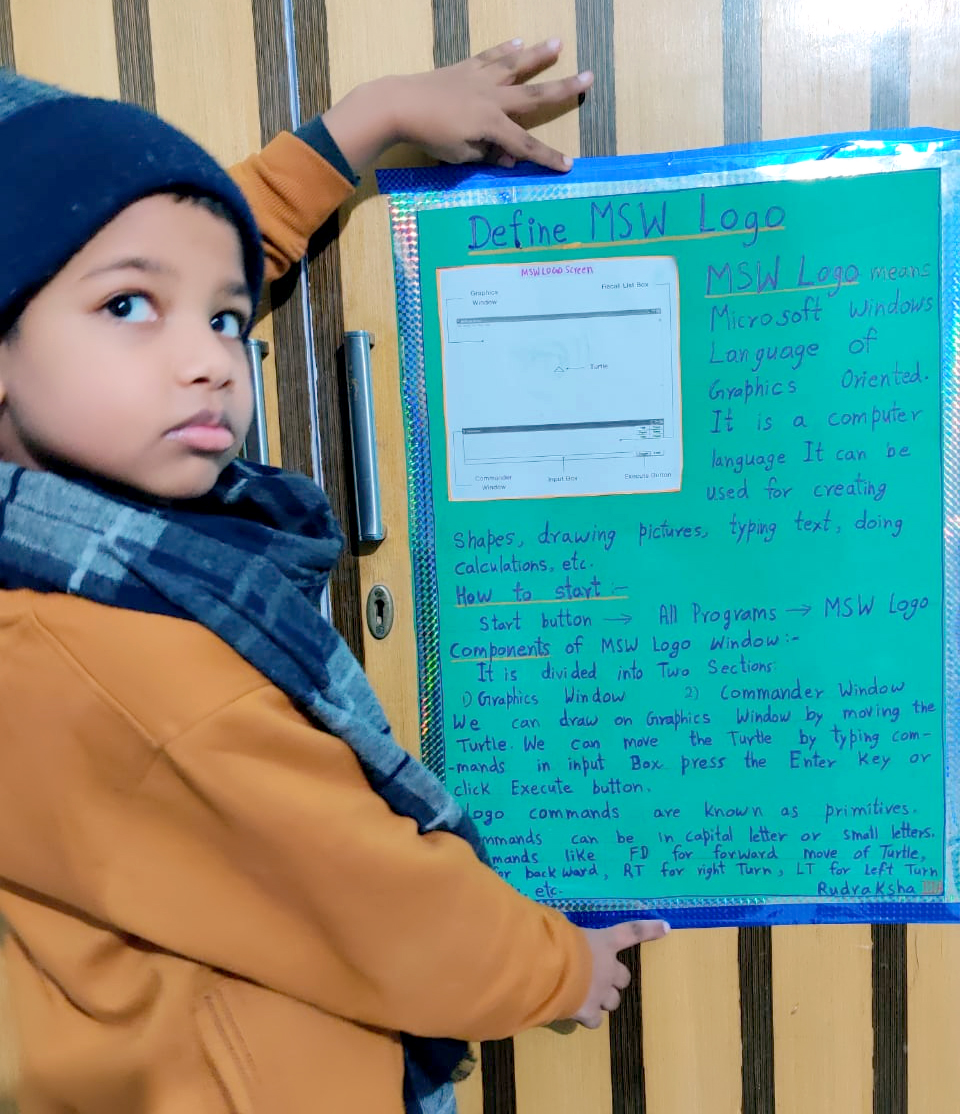 Define MSW Logo
MSW LOGO Screen
Graphics
Window
Recall List Box
Turtle
Commander
Window
Input Box
Execute Button
MSW Logo means
Microsoft Windows
Language of
Graphics Oriented.
It is a computer
language It can be
used for creating
Shapes, drawing pictures, typing text, doing
calculations, etc.
How to start :-
Start button → All Programs → MSW Logo
Components of MSW Logo Window :-
It is divided into Two Sections:
1) Graphics Window 2) Commander Window
We can draw on Graphics Window by moving the
Turtle. We can move the Turtle by typing com-
-mands in input Box press the Enter Key or
click Execute button.
Logo commands are known as primitives.
mmands can be in capital letter or small letters.
mands like FD for forward move of Turtle,
or back ward, RT for right Turn, LT for Left Turn
etc.
Rudraksha